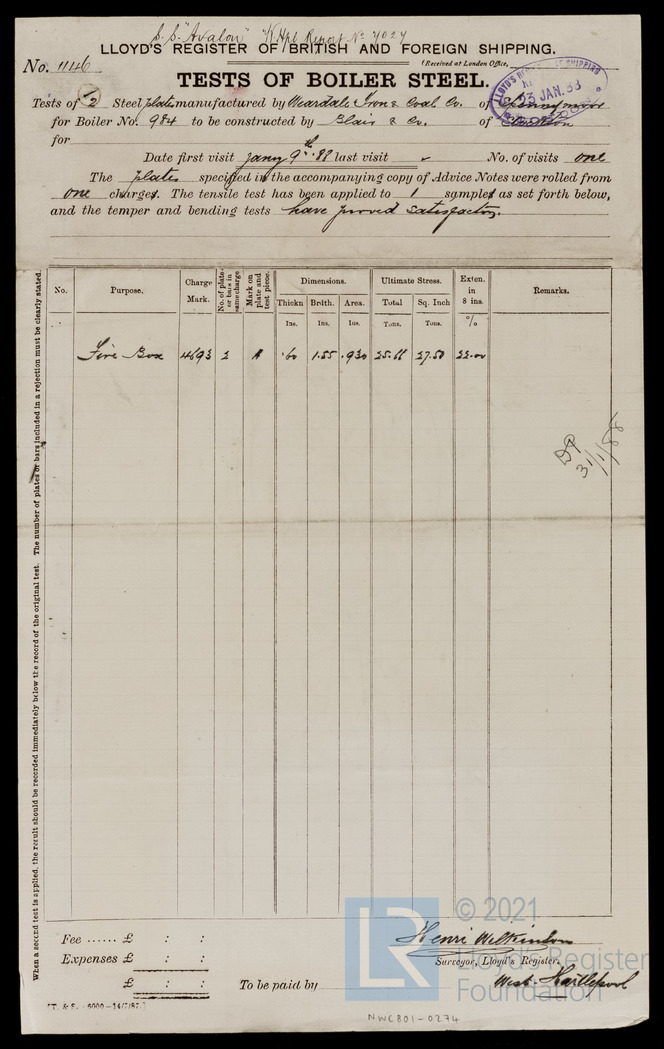 S.S. "Avalon" W. Hpl Report No 7027
LLOYD'S REGISTER OF BRITISH AND FOREIGN SHIPPING.
No. 1146
(Received at London Office,
TESTS OF BOILER STEEL.
23 JAN. 88
Tests of 2 Steel plates manufactured by Weardale Iron & Coal Co. of Spennymoor
for Boiler No. 984 to be constructed by Blair & Co. of Stockton
for
Date first visit Jany 9th. 88 last visit No. of visits one
The plates specified in the accompanying copy of Advice Notes were rolled from
one charges. The tensile test has been applied to 1 samples as set forth below,
and the temper and bending tests have proved satisfactory.
No. Purpose. Charge Mark. No. of plates or bars in same charge Mark on plate and test piece. Dimensions. Ultimate Stress. Exten. in 8 ins. Remarks.
Thickn Brdth. Area. Total Sq. Inch
Ins. Ins. Ins. Tons. Tons. %
Fire Box 4693 2 A .60 1.55 .930 25.61 27.50 22.00
BP
31/1/88
When a second test is applied, the result should be recorded immediately below the record of the original test. The number of plates or bars included in a rejection must be clearly stated.
Fee ...... £ : :
Expenses £ : :
£ : :
Henri Wilkinson
Surveyor, Lloyd's Register.
To be paid by West Hartlepool
T. & S. 5000-14/7/87.
NWC801-0274
LR
© 2021
Lloyd's Register
Foundation